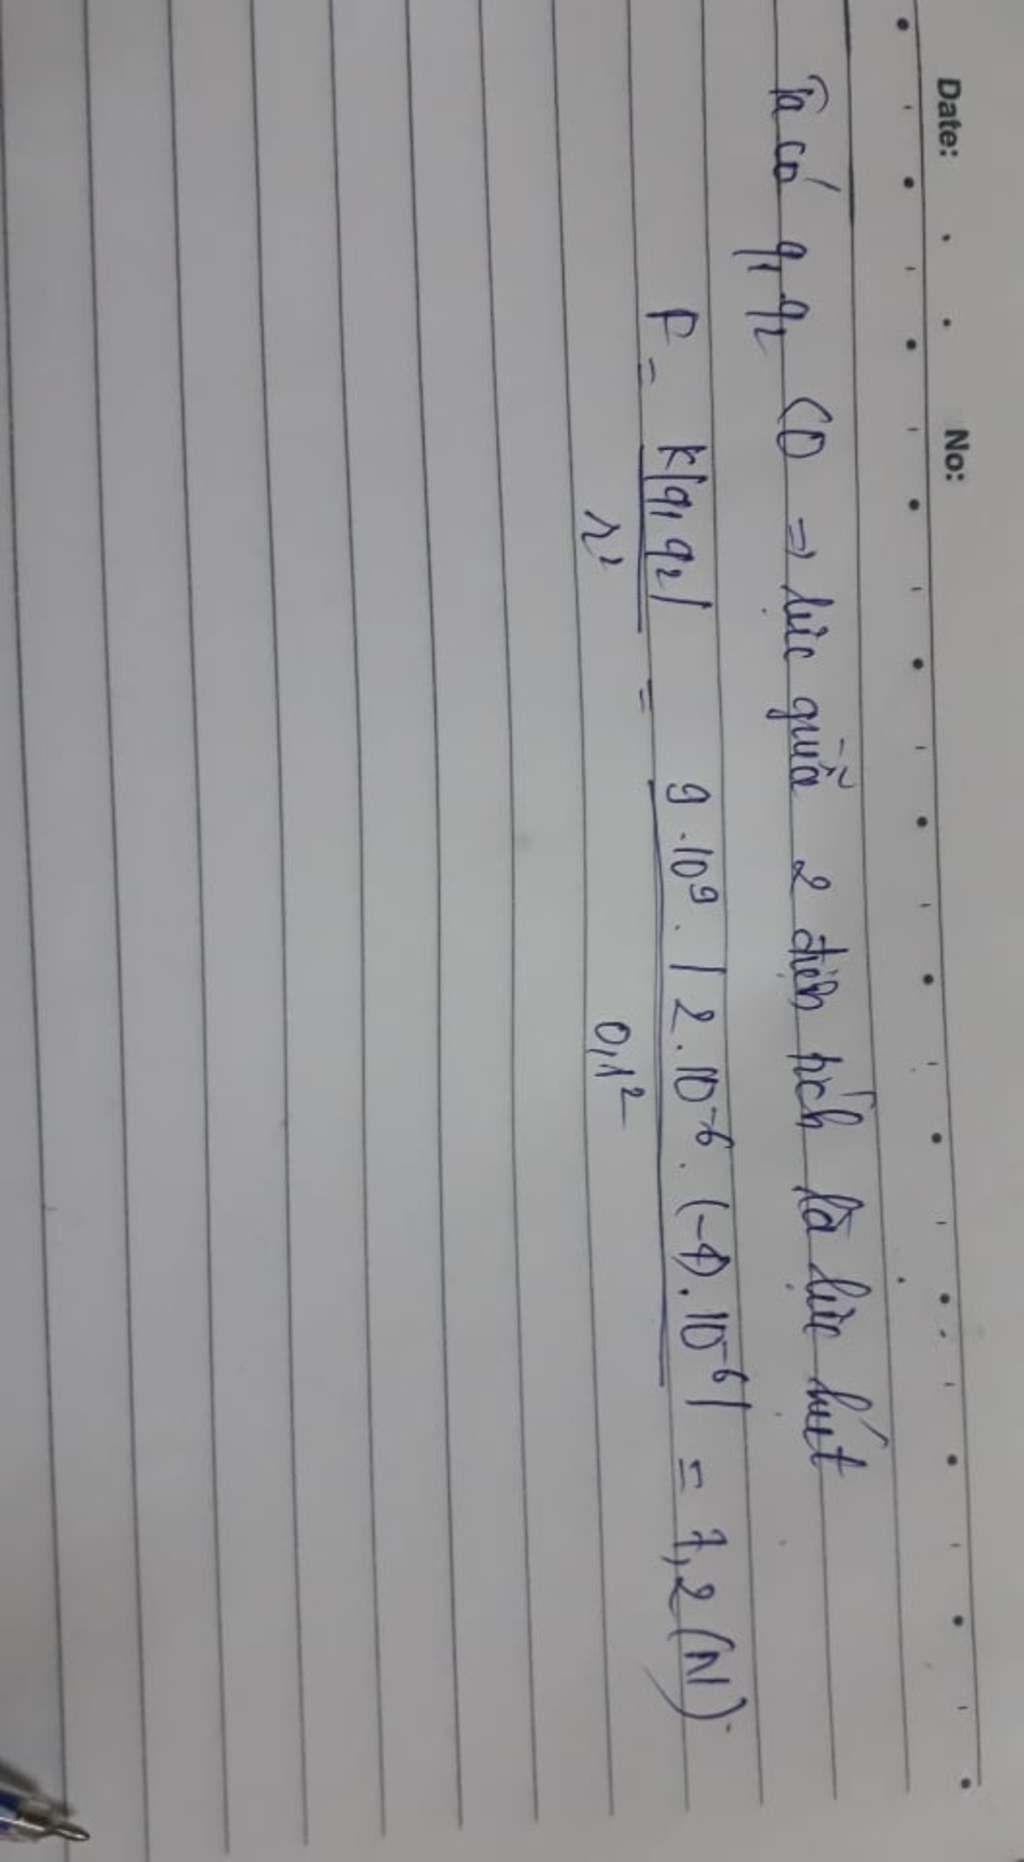 Date: No:
Ta có q₁.q₂ <0 => lực giữa 2 điện tích là lực hút
F = k|q₁ q₂| / r² = 9.10⁹.|2.10⁻⁶.(-4).10⁻⁶| / 0,1² = 7,2 (N).